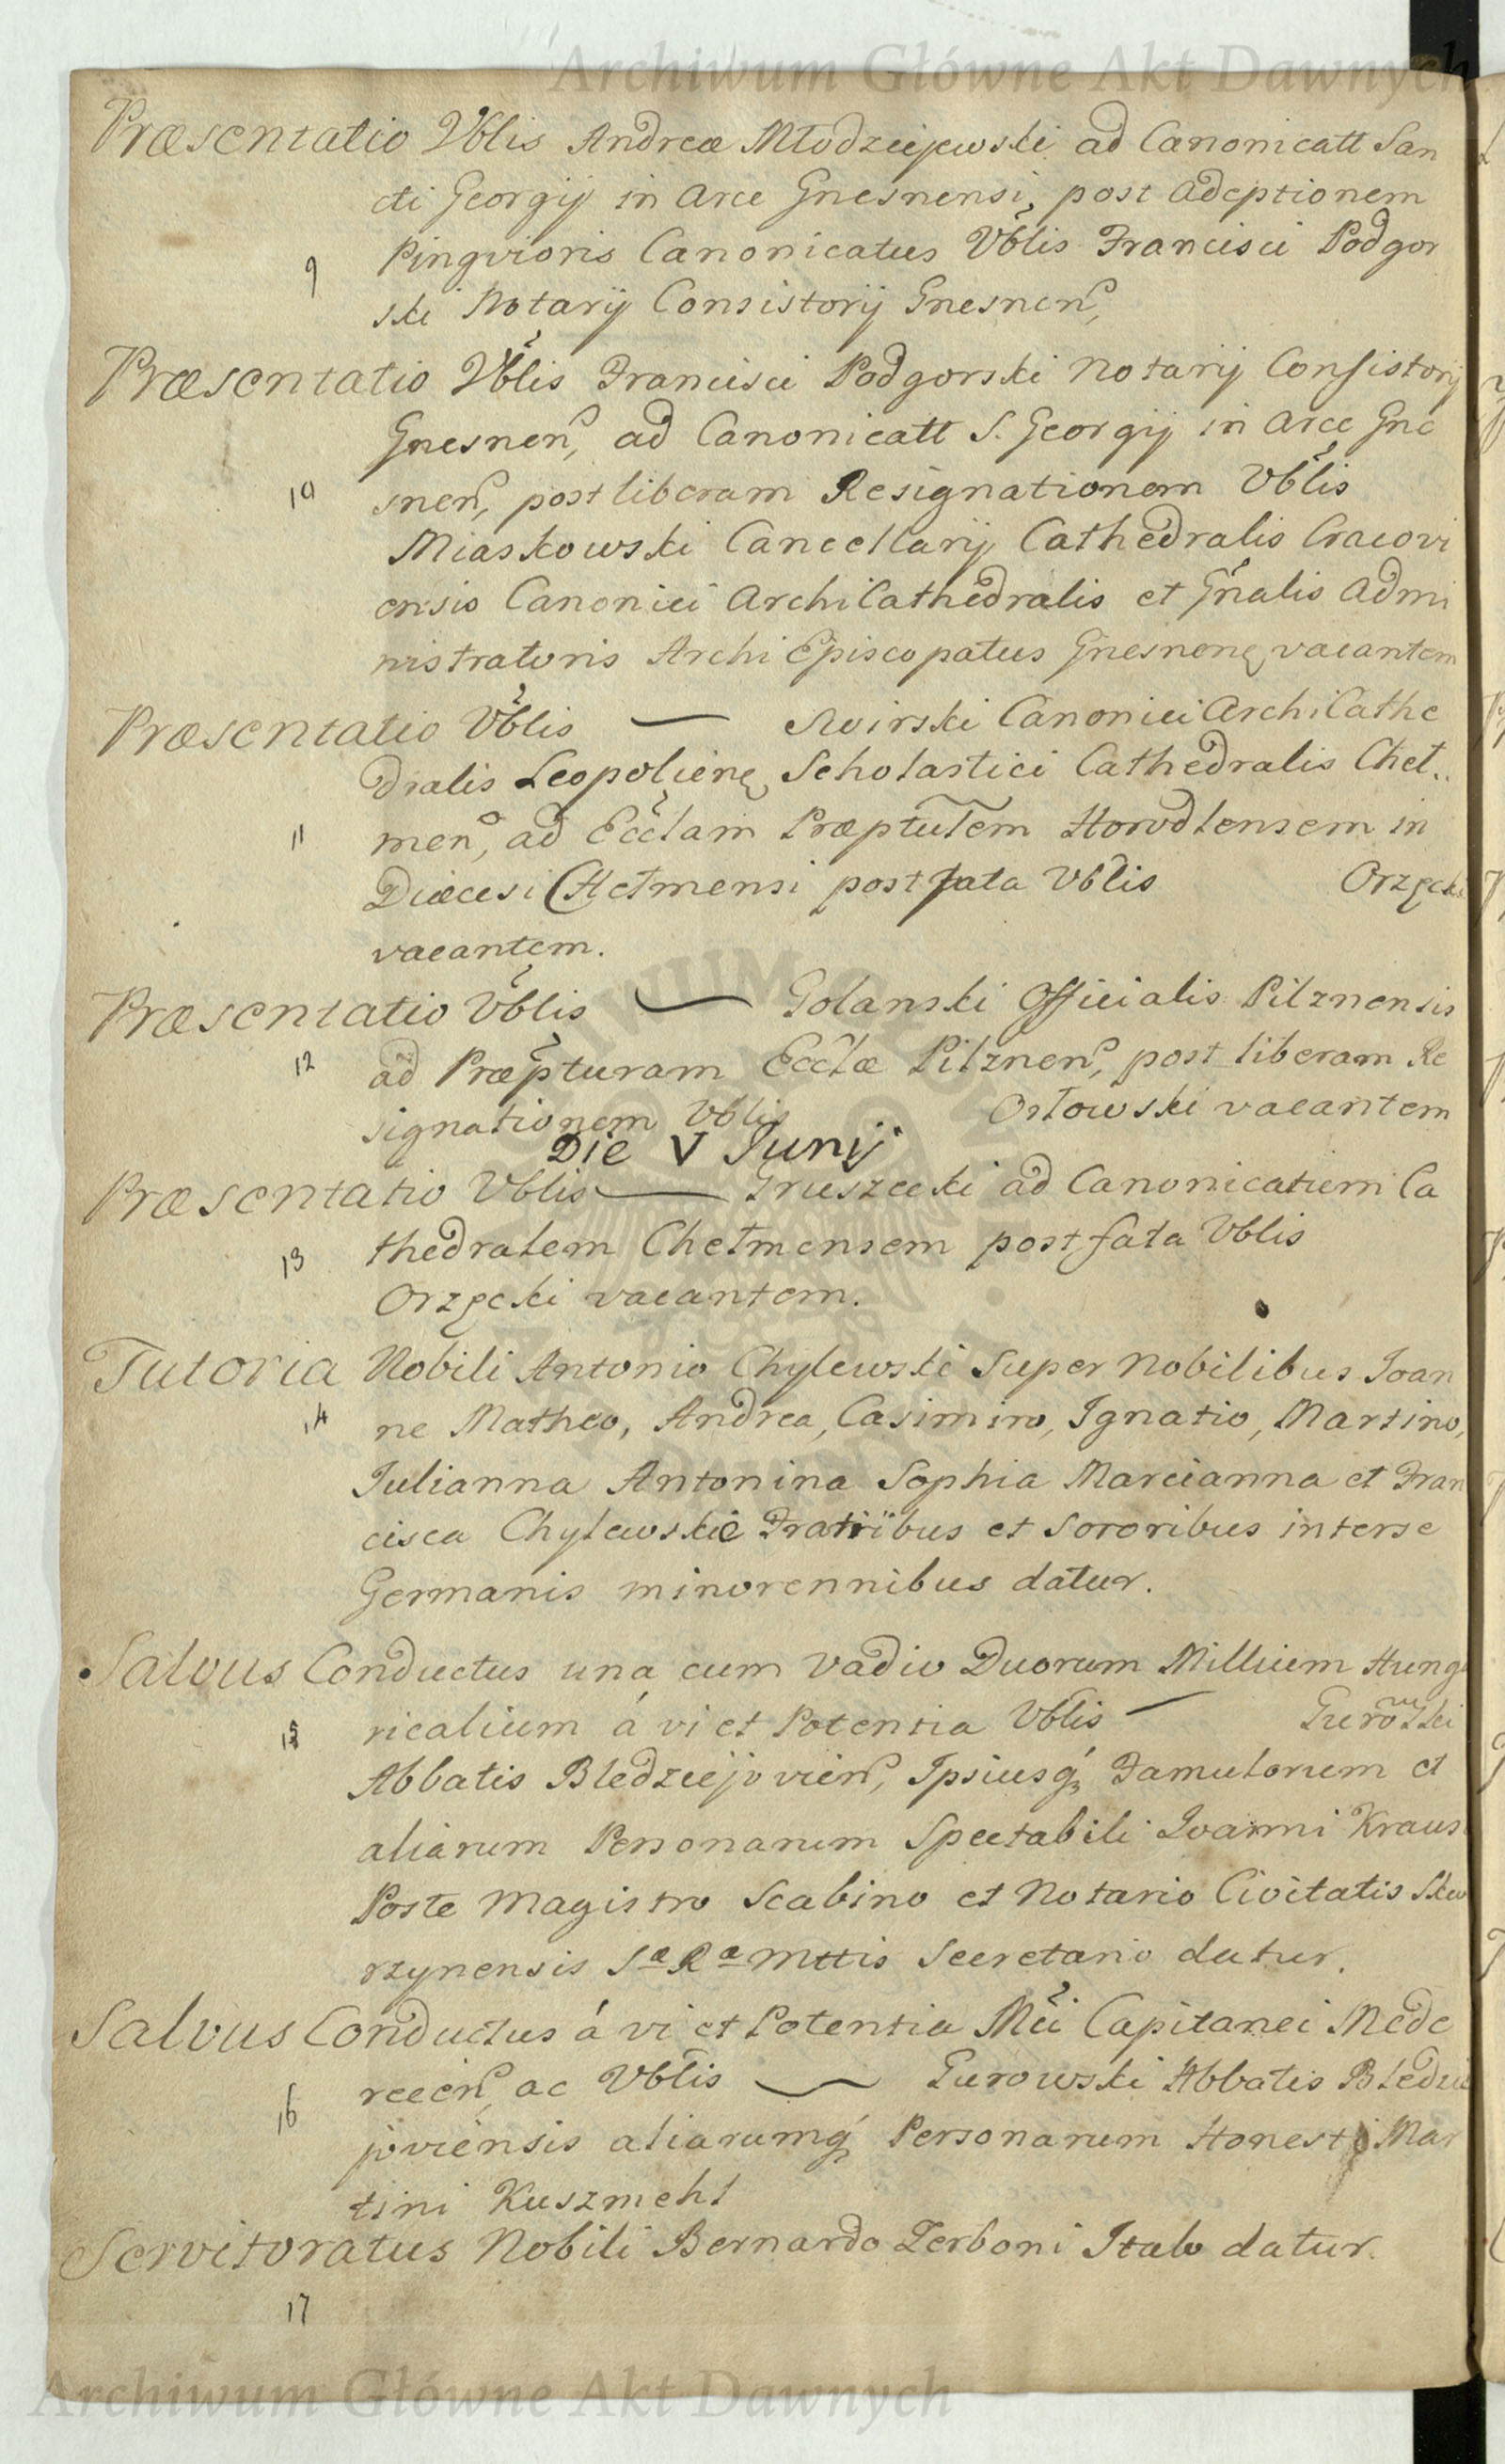 Archiwum Główne Akt Dawnych
Præsentatio Vblis Andreæ Młodziejewski ad Canonicatt San
cti Georgij in Arce Gnesnensi, post Adeptionem
Pingvioris Canonicatus Vblis Francisci Podgor
9
ski Notarij Consistorij Gnesnen,
Præsentatio Vblis Francisci Podgorski Notarij Consistorij
Gnesnen, ad Canonicatt S. Georgij in Arce Gne
10
snen, post liberam Resignationem Vblis
Miaskowski Cancellarij Cathedralis Cracovi
ensis Canonici ArchiCathedralis et Gnalis Admi
nistratoris Archi Episcopatus Gnesnen, vacantem
Præsentatio Vblis — Swirski Canonici ArchiCathe
dralis Leopolien, Scholastici Cathedralis Cheł..
11
men, ad Ecclam Præptulem Horodlensem in
Diæcesi Chełmensi post fata Vblis Orzęcki
vacantem.
Præsentatio Vblis — Golanski Officialis Pilznensis
12
ad Præpturam Ecclæ Pilznen, post liberam Re
signationem Vblis Orłowski vacantem
Die V Junij
Præsentatio Vblis — Gruszecki ad Canonicatum Ca
13
thedralem Chełmensem post fata Vblis
Orzęcki vacantem.
Tutoria Nobili Antonio Chylewski Super Nobilibus Joan
14
ne Matheo, Andrea, Casimiro, Ignatio, Martino,
Julianna Antonina Sophia Marcianna et Fran
cisca Chylewskie Fratribus et Sororibus inter se
Germanis minorennibus datur.
Salvus Conductus una cum Vadio Duorum Millium Hunga
15
ricalium á vi et Potentia Vblis — Gurowski
Abbatis Bledziejovien, Ipsiusq, Famulorum et
aliarum Personarum Spectabili Joanni Kraus
Poste Magistro Scabino et Notario Civitatis Skw
rzynensis Sæ Ræ Mttis Secretario datur.
Salvus Conductus á vi et Potentia Mci Capitanei Mede
recen, ac Vblis — Gurowski Abbatis Bledzie
16
joviensis aliarumq, Personarum Honesti Mar
tini Kuszmehl
Servitoratus Nobili Bernardo Zerboni Italo datur.
17
Archiwum Główne Akt Dawnych